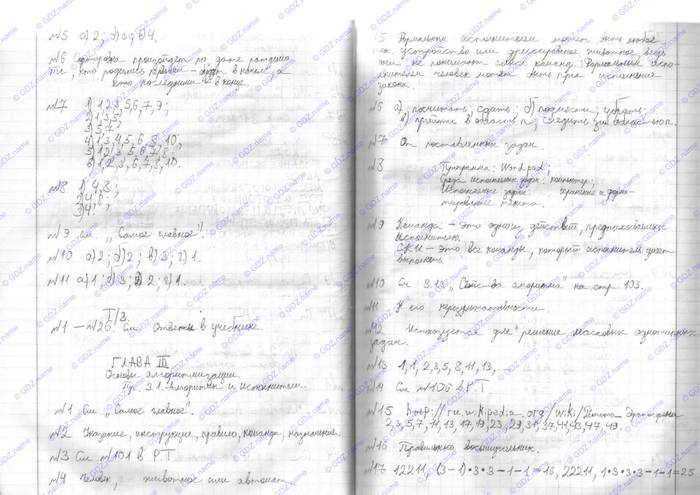 №5 а) 2, б) 3, в) 4.
№6 Сортировка произойдёт по дате рождения
кто родились - в конце, а
кто последними - в конце
№7 1) 1,2,3,5,6,7,9;
2) 1,3,5;
3) 5,7;
4) 1,3,4,5,6,8,10,
6) 1,2,3,6,7,8,10.
№8 1) 4,8;
3) 4.
№9 См „Самое главное".
№10 а) 2; б) 2; в) 3; г) 1.
№11 а) 1; б) 3; в) 2; г) 1.
ТЗ.
№1 – №26. См Ответы в учебнике
ГЛАВА III
Основы алгоритмизации
Пр. 3.1. Алгоритмы и исполнители
№1 См „Самое главное".
№2 Указание, инструкция, правило, команда, назначение.
№3 См №101 в Р.Т
№4 Человек, животное или автомат
5 Формальным исполнителем может быть любое
устройство или дрессированное животное, ведь
они не понимают смысл команд. Формальным испо-
лнителем человек может быть при исполнение
закона.
№6 а) посчитать, сдать; б) поднести, убрать;
в) прийти в область n, следить за областью n.
№7 От поставленных задач.
№8 Программа: Word pad;
Среда исполнения задач: компьютер;
тирование текста.
№9 Команда – это одно из действий, предписываемое
исполнителю.
СКИ – это все команды, который исполнитель умеет
выполнять
№10 См 3.1.3 „Свойства алгоритма" на стр 103.
№11 К его результативности
№12 Используется для решение массовых однотипных
задач.
№13 1, 1, 2, 3, 5, 8, 11, 13,
№14 См №106 в Р.Т
№15 http://ru.wikipedia.org/wiki/Решето_Эратосфена
2,3,5,7,11,13,17,19,23,29,31,37,41,43,47,49.
№16 Правильный восьмиугольник.
№17 12211, (3-1)•3•3-1-1=16, 22211, 1•3•3•3-1-1=25
© GDZ.name